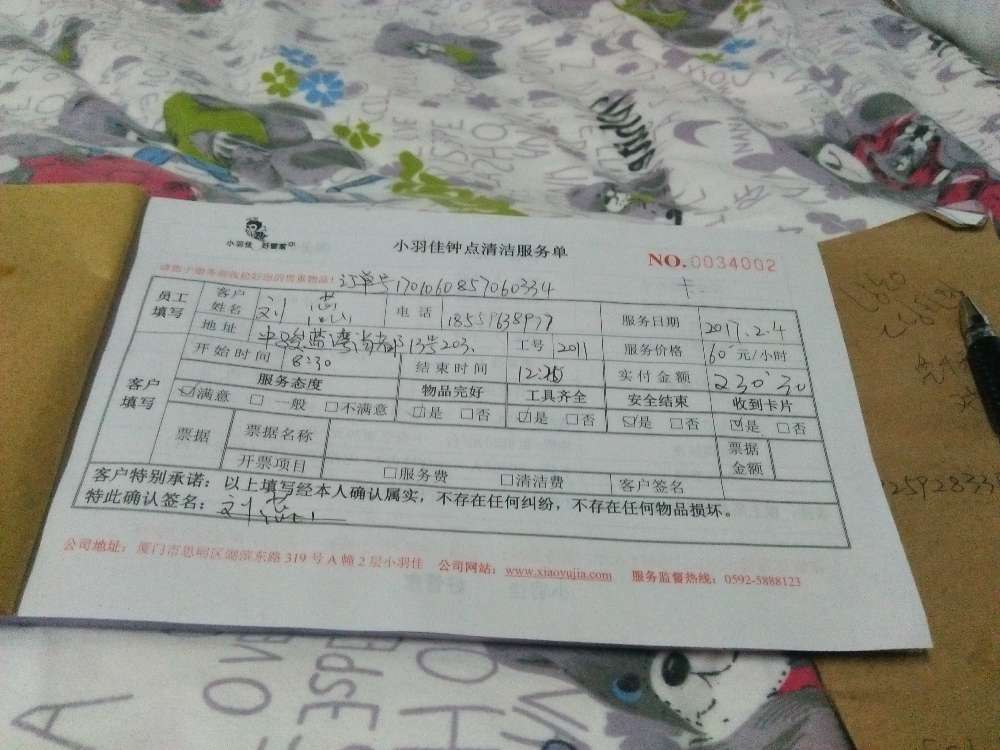 小羽佳 好管家
小羽佳钟点清洁服务单
NO.0034002
订单号1701060857060334
卡
员工填写 客户姓名 刘 电话 服务日期 2017.2.4
地址 13号203. 工号 2011 服务价格 60元/小时
客户填写 开始时间 8:30 结束时间 实付金额 230.30
服务态度 物品完好 工具齐全 安全结束 收到卡片
☑满意 □一般 □不满意 ☑是 □否 ☑是 □否 ☑是 □否 ☑是 □否
票据 票据名称 票据金额
开票项目 □服务费 □清洁费 客户签名
客户特别承诺：以上填写经本人确认属实，不存在任何纠纷，不存在任何物品损坏。
特此确认签名：刘
公司地址：厦门市思明区湖滨东路 319 号 A 幢 2 层小羽佳 公司网站：www.xiaoyujia.com 服务监督热线：0592-5888123